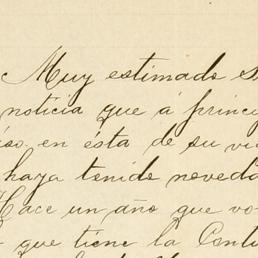 Muy estimado S
noticia que á princ
éso en ésta de su vi
haya tenido noveda
Hace un año que vo
que tiene la Cont